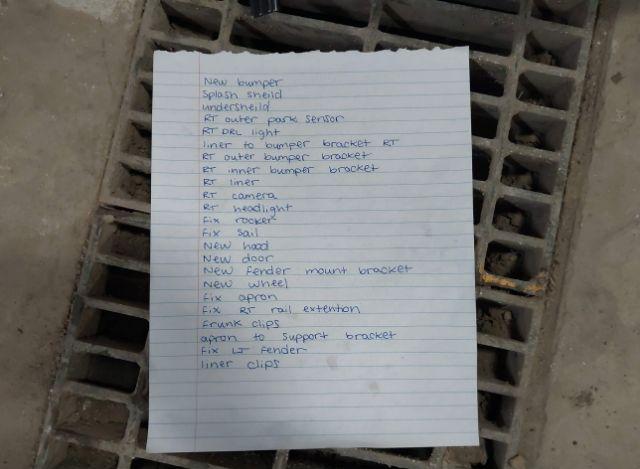 New bumper
Splash sheild
undersheild
RT outer park sensor
RT DRL light
liner to bumper bracket RT
RT outer bumper bracket
RT inner bumper bracket
RT liner
RT camera
RT headlight
fix rocker
fix sail
New hood
New door
New fender mount bracket
New wheel
fix apron
fix RT rail extention
frunk clips
apron to support bracket
fix LT fender
liner clips